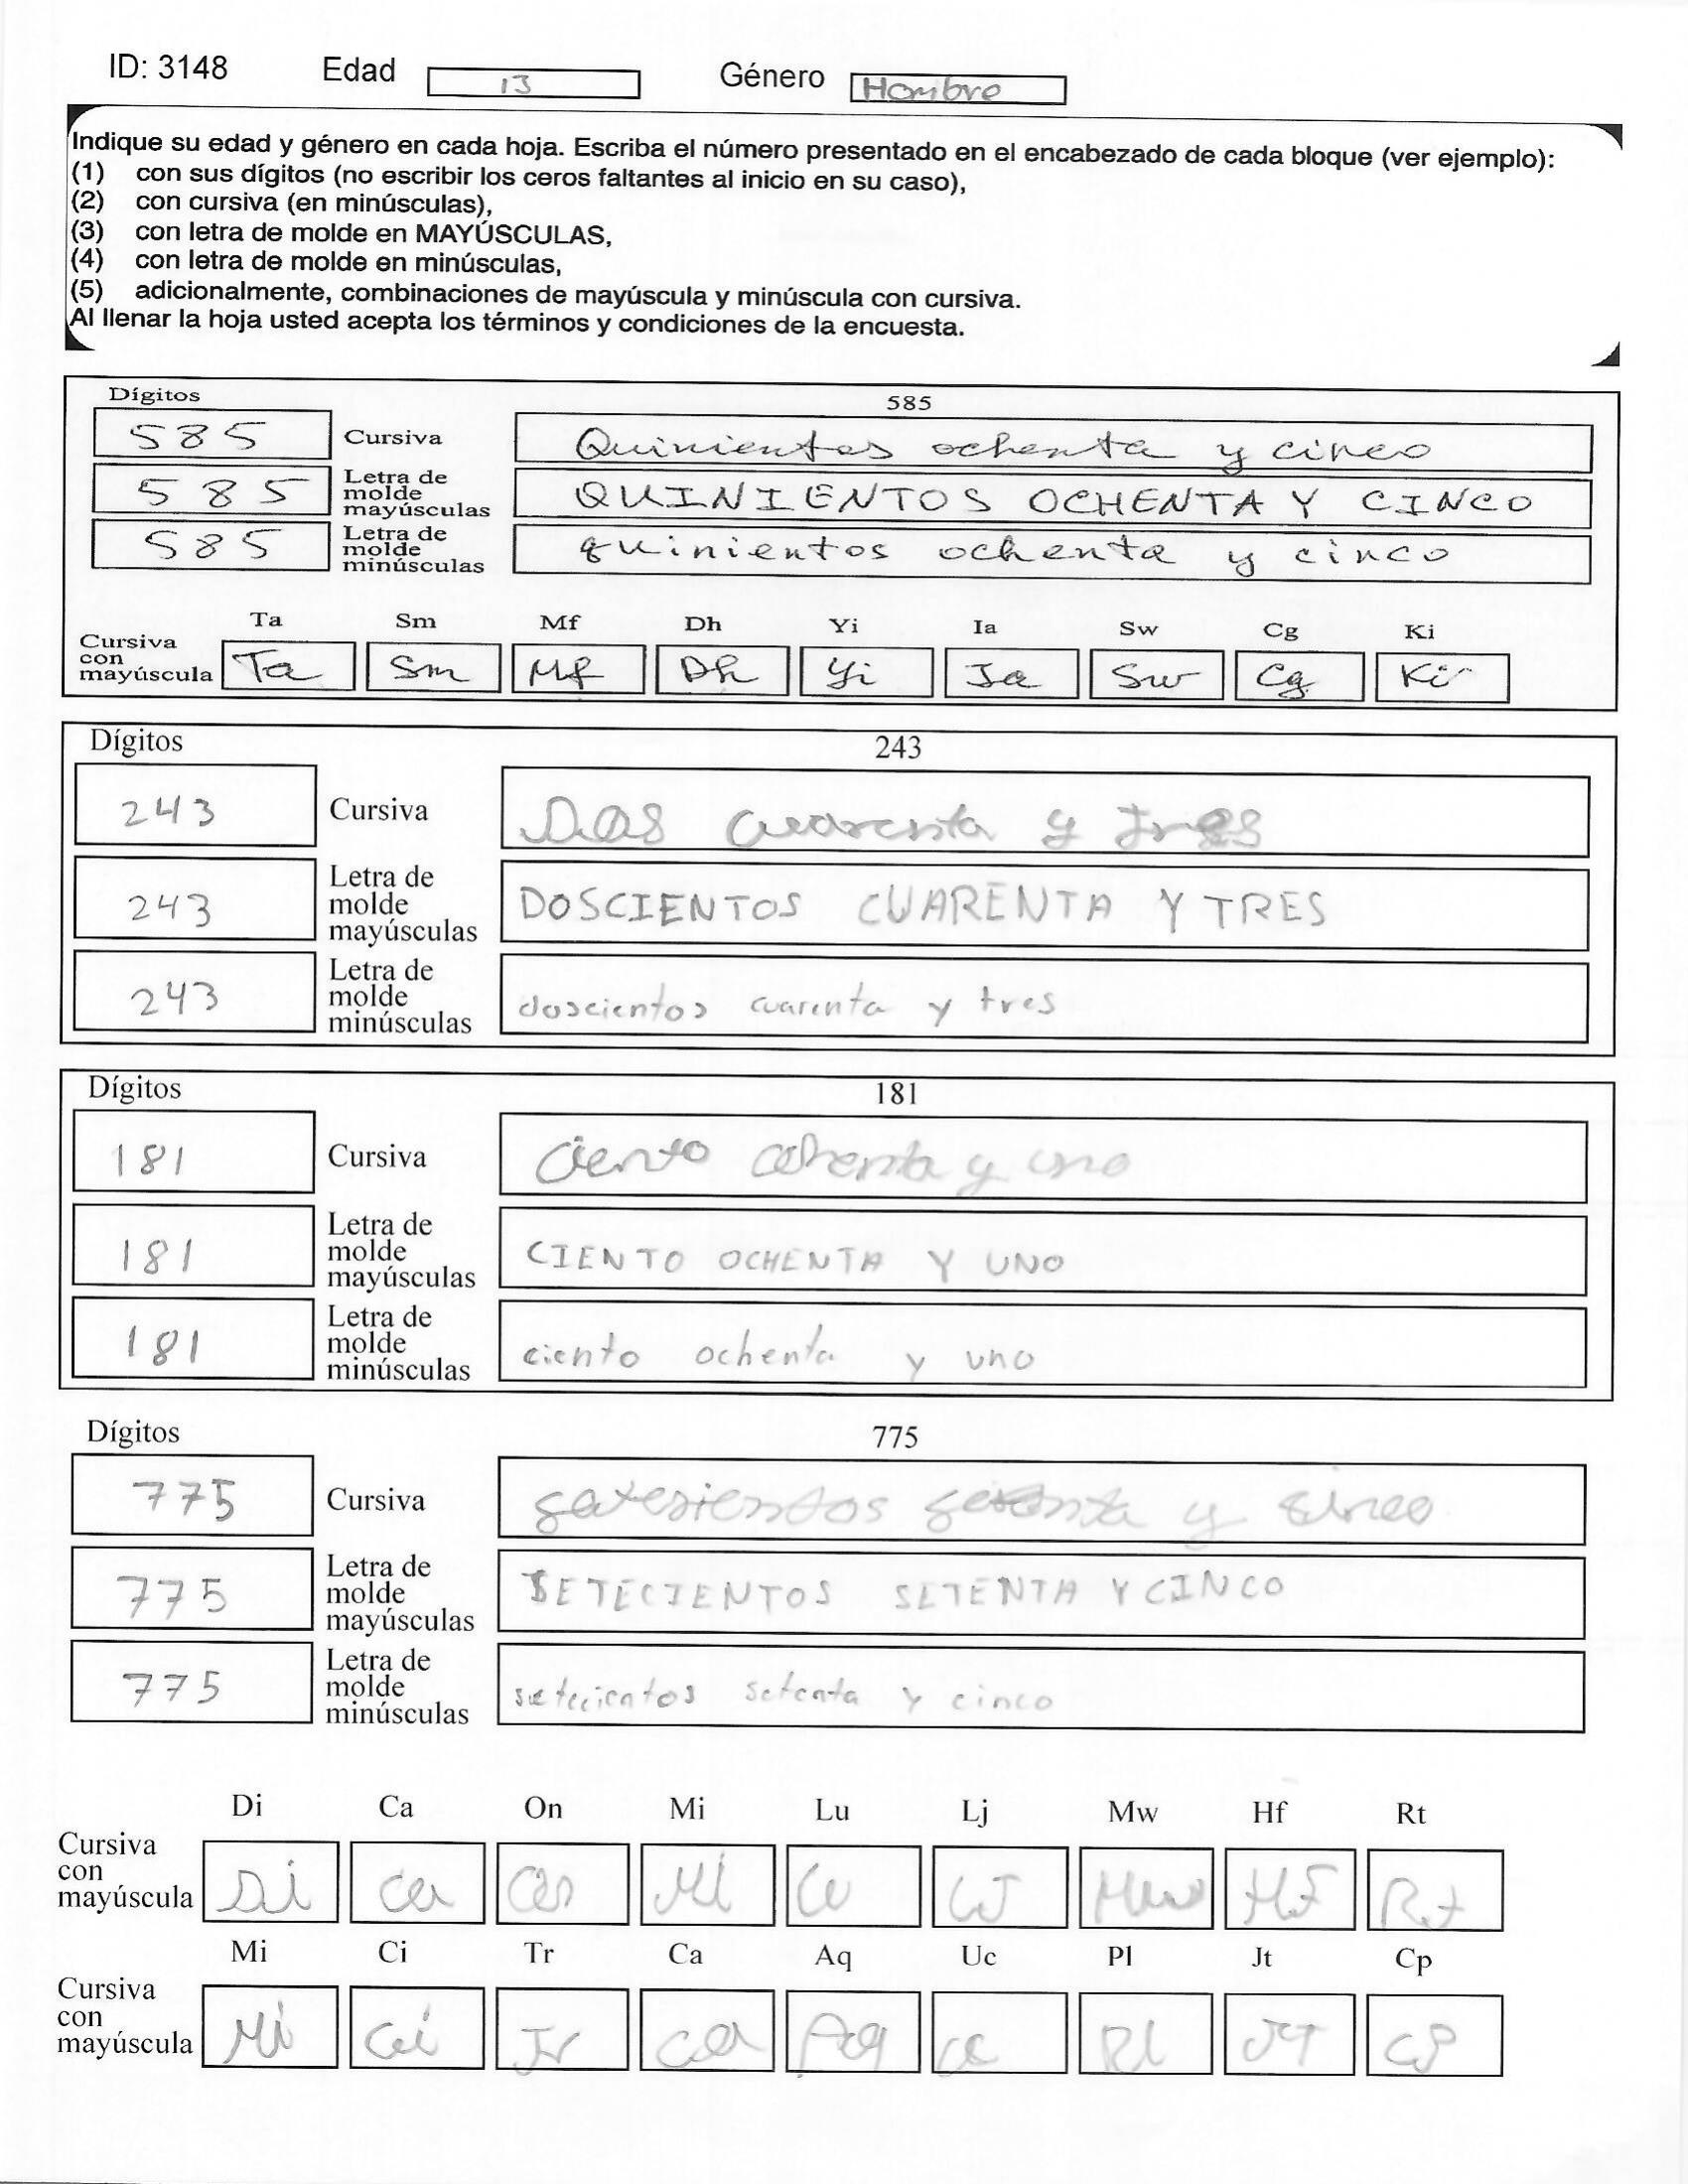 ID: 3148 Edad 13 Género Hombre
Indique su edad y género en cada hoja. Escriba el número presentado en el encabezado de cada bloque (ver ejemplo):
(1) con sus dígitos (no escribir los ceros faltantes al inicio en su caso),
(2) con cursiva (en minúsculas),
(3) con letra de molde en MAYÚSCULAS,
(4) con letra de molde en minúsculas,
(5) adicionalmente, combinaciones de mayúscula y minúscula con cursiva.
Al llenar la hoja usted acepta los términos y condiciones de la encuesta.
Dígitos 585
585 Cursiva Quinientos ochenta y cinco
585 Letra de molde mayúsculas QUINIENTOS OCHENTA Y CINCO
585 Letra de molde minúsculas quinientos ochenta y cinco
Ta Sm Mf Dh Yi Ia Sw Cg Ki
Cursiva con mayúscula Ta Sm Mf Dh Yi Ia Sw Cg Ki
Dígitos 243
243 Cursiva Dos cuarenta y tres
243 Letra de molde mayúsculas DOSCIENTOS CUARENTA Y TRES
243 Letra de molde minúsculas doscientos cuarenta y tres
Dígitos 181
181 Cursiva Ciento ochenta y uno
181 Letra de molde mayúsculas CIENTO OCHENTA Y UNO
181 Letra de molde minúsculas ciento ochenta y uno
Dígitos 775
775 Cursiva y cinco
775 Letra de molde mayúsculas SETECIENTOS SETENTA Y CINCO
775 Letra de molde minúsculas setecientos setenta y cinco
Di Ca On Mi Lu Lj Mw Hf Rt
Cursiva con mayúscula Di Ca On Mi Lu LJ Mw Hf Rt
Mi Ci Tr Ca Aq Uc Pl Jt Cp
Cursiva con mayúscula Mi Ci Tr Ca Aq Uc Pl JT CP